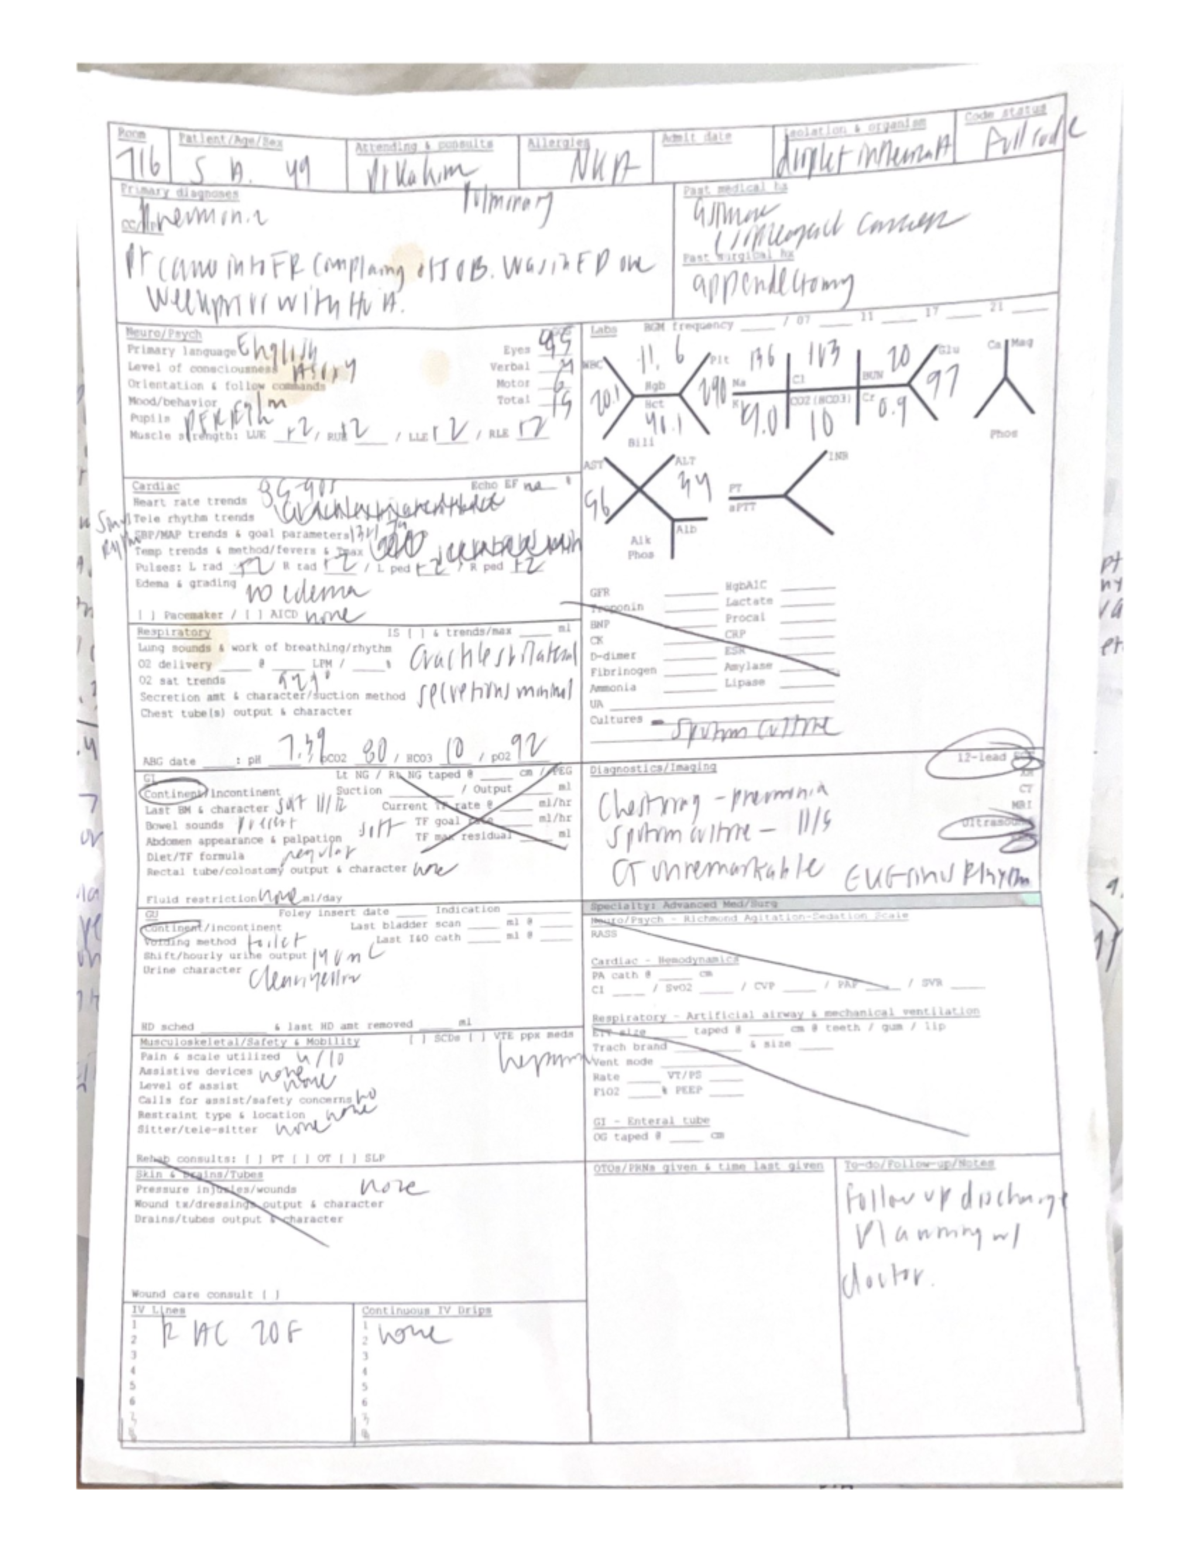 Room
716
Patient/Age/Sex
S B. 49
Attending & consults
Pulmonary
Allergies
NKA
Admit date
Isolation & organism
droplet influenza A
Code status
Full code
Primary diagnoses
Pneumonia
Pt came into ER complaining of SOB. Was in ED one
week prior with
Past medical hx
Past surgical hx
appendectomy
Neuro/Psych
Primary language English
Level of consciousness
Orientation & follow commands
Mood/behavior
Pupils
Muscle strength: LUE +2 / RUE +2 / LLE +2 / RLE +2
Eyes
Verbal
Motor 6
Total 15
Labs BGM frequency ____ / 07 ____ 11 ____ 17 ____ 21 ____
WBC 20.1
Hgb 11.6
Hct 40.1
Plt 290
Bili
Na 136
Cl 103
BUN 20
Glu 97
K 4.0
CO2 (HCO3) 10
Cr 0.9
Ca Mag
Phos
AST
ALT
Alk Phos
Alb
PT
aPTT
INR
Cardiac
Echo EF na %
Heart rate trends
Tele rhythm trends
SBP/MAP trends & goal parameters
Temp trends & method/fevers & Tmax
Pulses: L rad +2 R rad +2 / L ped +2 / R ped +2
Edema & grading no edema
[ ] Pacemaker / [ ] AICD none
GFR
Troponin
BNP
CK
D-dimer
Fibrinogen
Ammonia
UA
HgbA1C
Lactate
Procal
CRP
ESR
Amylase
Lipase
Cultures - Sputum culture
Respiratory
IS [ ] & trends/max ____ ml
Lung sounds & work of breathing/rhythm crackles bilateral
O2 delivery ____ @ ____ LPM / ____ %
O2 sat trends
Secretion amt & character/suction method secretions minimal
Chest tube(s) output & character
ABG date ____: pH 7.39 pCO2 80 / HCO3 10 / pO2 92
GI
Lt NG / Rt NG taped @ ____ cm / PEG
Continent/incontinent
Suction ____ / Output ____ ml
Last BM & character Sat 11/12
Current TF rate @ ____ ml/hr
Bowel sounds present
TF goal rate ____ ml/hr
Abdomen appearance & palpation soft
TF max residual ____ ml
Diet/TF formula regular
Rectal tube/colostomy output & character none
Fluid restriction none ml/day
Diagnostics/Imaging
12-lead
CT
MRI
Ultrasound
Chest xray - pneumonia
Sputum culture - 11/5
CT unremarkable
EKG sinus rhythm
GU
Foley insert date ____ Indication ____
Continent/incontinent
Last bladder scan ____ ml @ ____
Voiding method toilet
Last I&O cath ____ ml @ ____
Shift/hourly urine output
Urine character clear yellow
HD sched ____ & last HD amt removed ____ ml
Specialty: Advanced Med/Surg
Neuro/Psych - Richmond Agitation-Sedation Scale
RASS
Cardiac - Hemodynamics
PA cath @ ____ cm
CI ____ / SvO2 ____ / CVP ____ / PAP ____ / SVR ____
Respiratory - Artificial airway & mechanical ventilation
ETT size ____ taped @ ____ cm @ teeth / gum / lip
Trach brand ____ & size ____
Vent mode
Rate ____ VT/PS ____
FiO2 ____% PEEP ____
GI - Enteral tube
OG taped @ ____ cm
Musculoskeletal/Safety & Mobility
[ ] SCDs [ ] VTE ppx meds
heparin
Pain & scale utilized 4/10
Assistive devices none
Level of assist none
Calls for assist/safety concerns no
Restraint type & location none
Sitter/tele-sitter none
Rehab consults: [ ] PT [ ] OT [ ] SLP
Skin & Drains/Tubes
Pressure injuries/wounds none
Wound tx/dressings output & character
Drains/tubes output & character
Wound care consult [ ]
OTOs/PRNs given & time last given
To-do/Follow-up/Notes
Follow up discharge
planning w/
doctor.
IV Lines
1
2
3
4
5
6
7
8
R AC 20 F
Continuous IV Drips
1
2
3
4
5
6
7
8
none